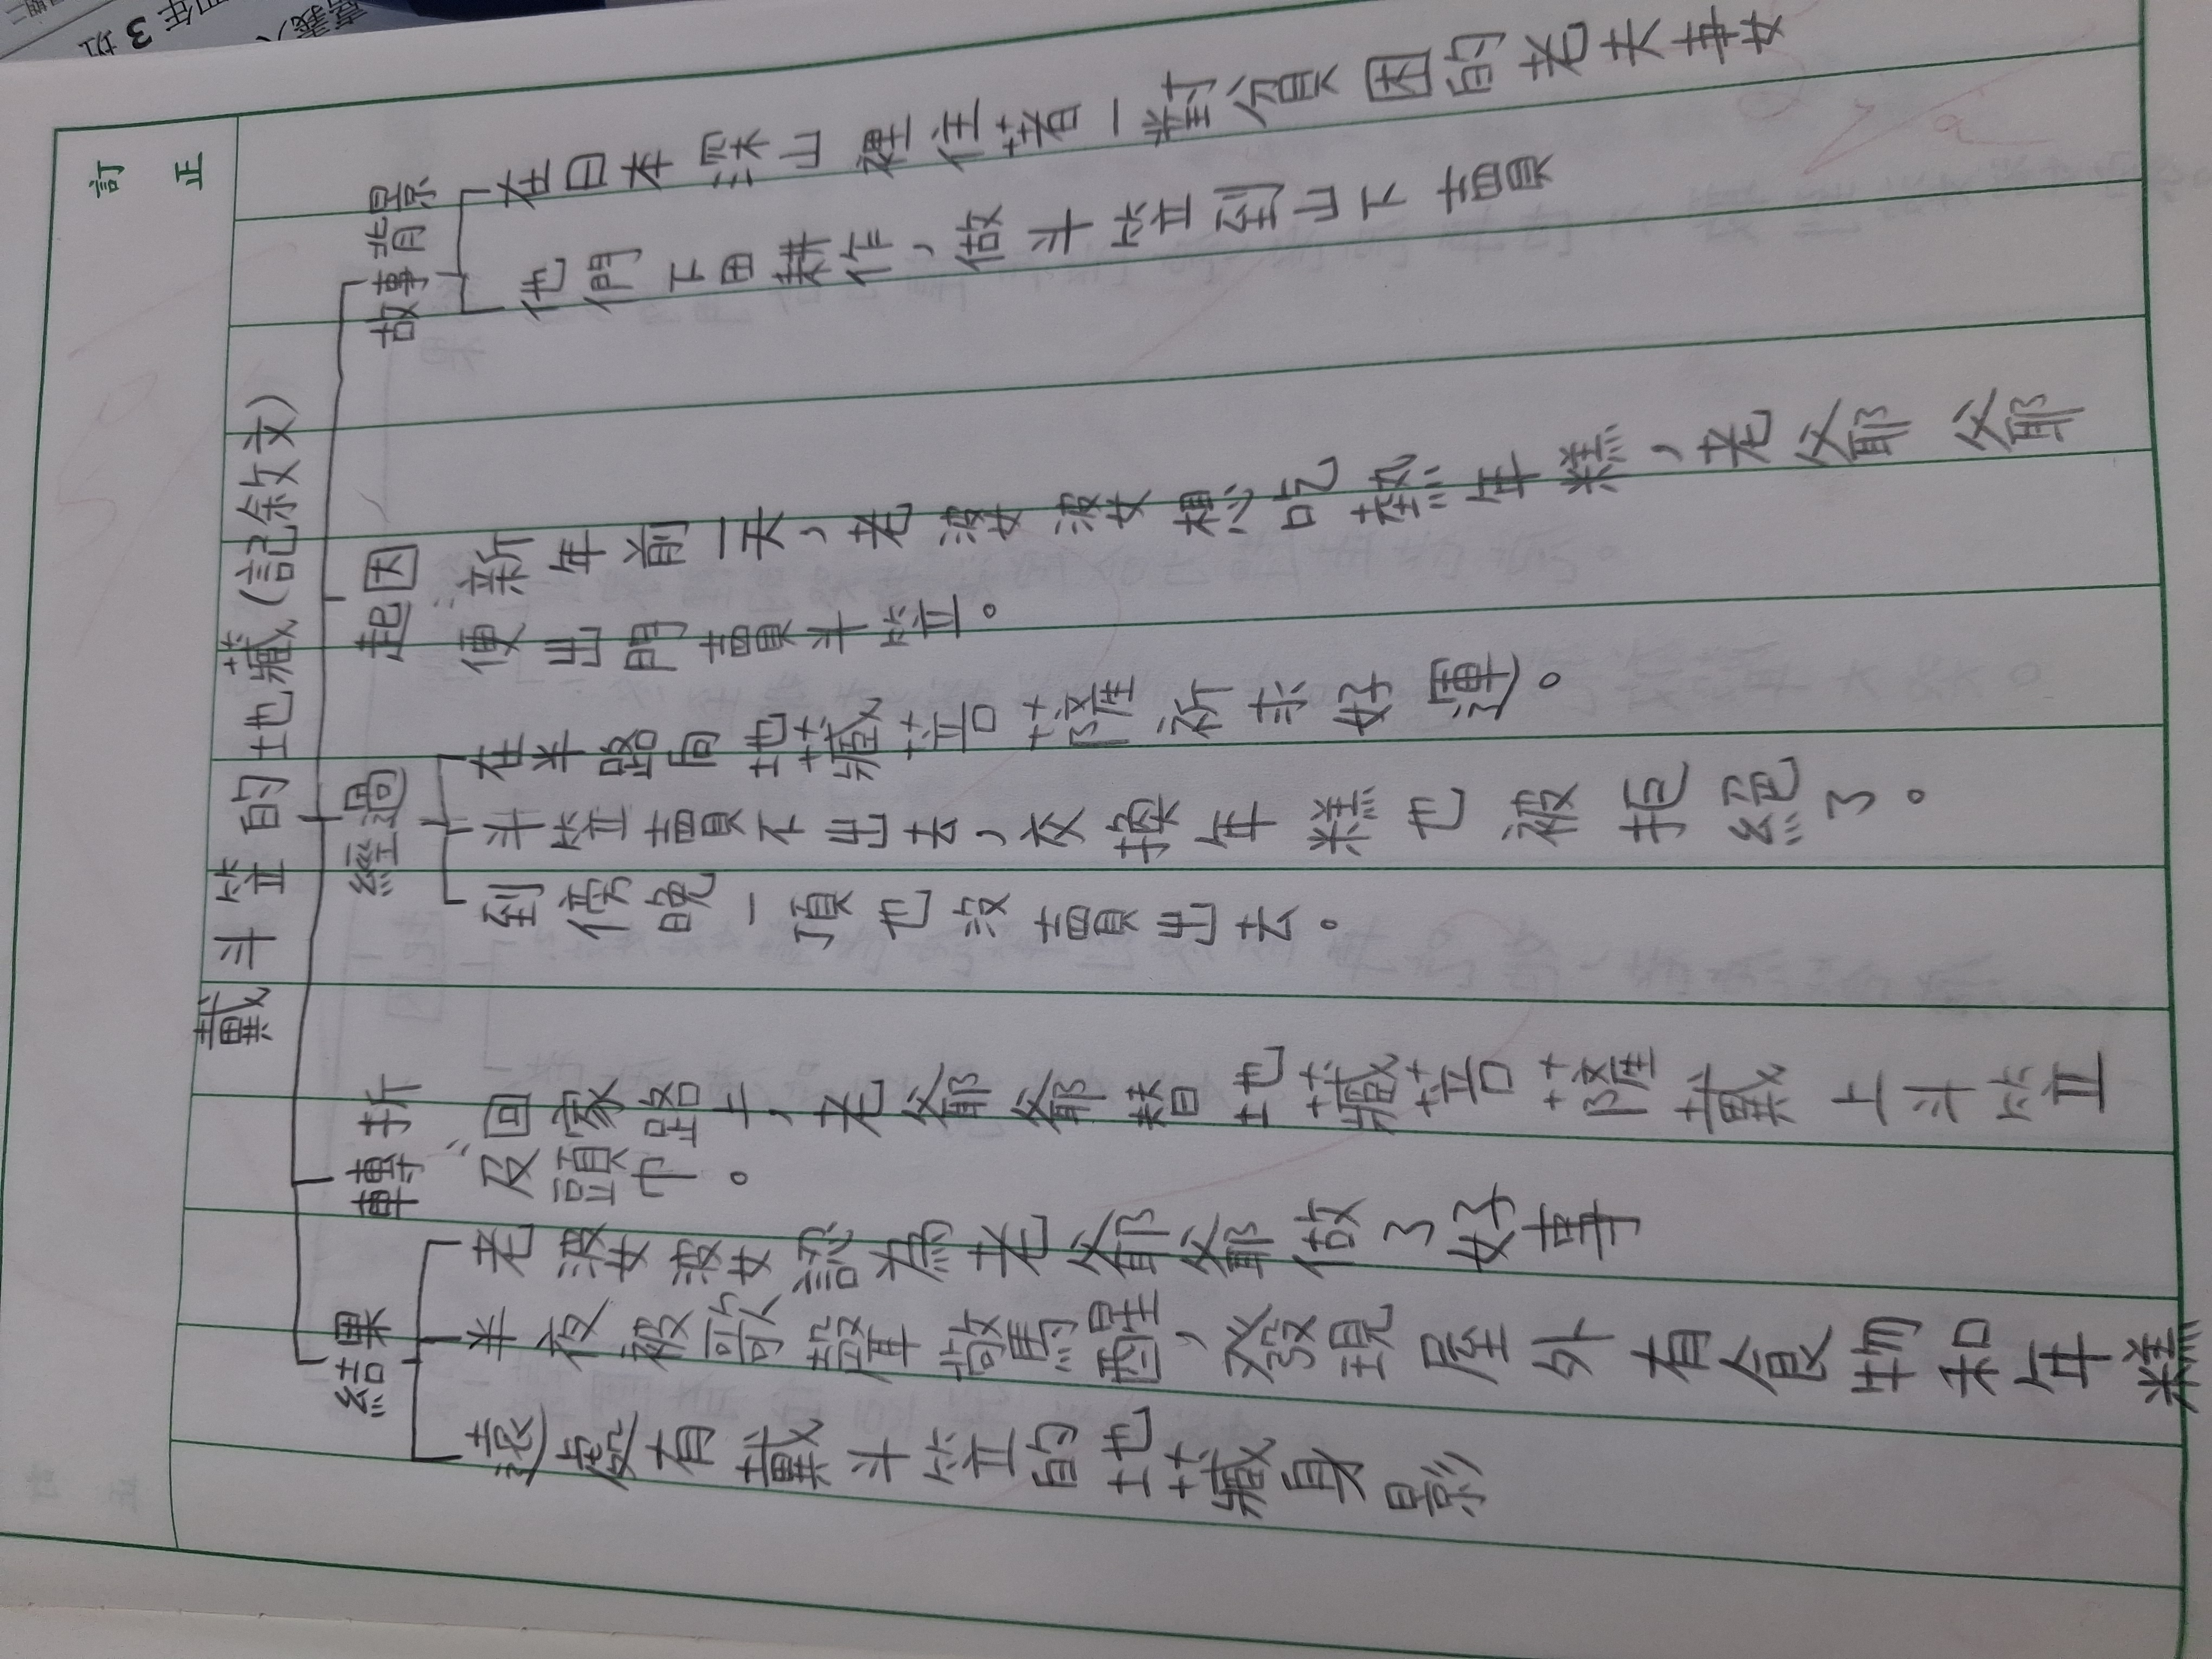 訂正
戴斗笠的地藏(記敘文)
故事背景
在日本深山裡住著一對貧困的老夫妻
他們下田耕作,做斗笠到山下賣
起因:新年前一天,老婆婆想吃熱年糕,老爺爺
便出門賣斗笠。
經過
在半路向地藏菩薩祈求好運。
斗笠賣不出去,交換年糕也被拒絕了。
到傍晚一頂也沒賣出去。
轉折:回家路上,老爺爺替地藏菩薩戴上斗笠
及頭巾。
結果
老婆婆認為老爺爺做了好事
半夜被歌聲驚醒,發現屋外有食物和年糕
遠處有戴斗笠的地藏身影
年3班